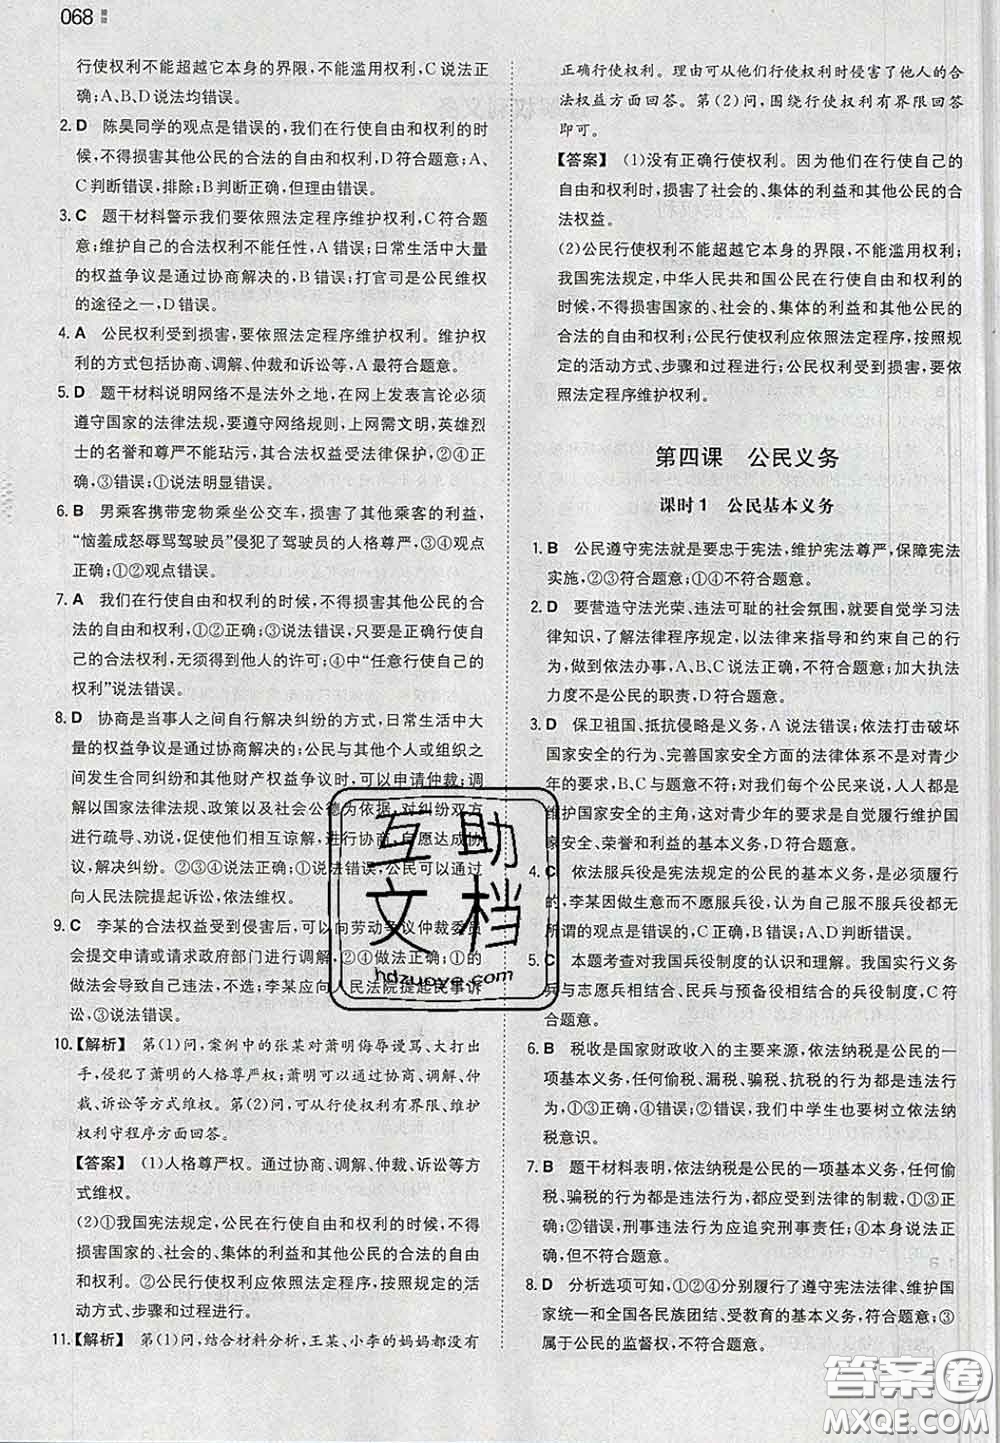 068
行使权利不能超越它本身的界限,不能滥用权利,C说法正
确;A、B、D说法均错误。
2. D 陈昊同学的观点是错误的,我们在行使自由和权利的时
候,不得损害其他公民的合法的自由和权利,D符合题意;A、
C判断错误,排除;B判断正确,但理由错误。
3. C 题干材料警示我们要依照法定程序维护权利,C符合题
意;维护自己的合法权利不能任性,A错误;日常生活中大量
的权益争议是通过协商解决的,B错误;打官司是公民维权
的途径之一,D错误。
4. A 公民权利受到损害,要依照法定程序维护权利。维护权
利的方式包括协商、调解、仲裁和诉讼等,A最符合题意。
5. D 题干材料说明网络不是法外之地,在网上发表言论必须
遵守国家的法律法规,要遵守网络规则,上网需文明,英雄烈
士的名誉和尊严不能玷污,其合法权益受法律保护,②③④
说法正确;①说法明显错误。
6. B 男乘客携带宠物乘坐公交车,损害了其他乘客的利益,
“恼羞成怒辱骂驾驶员”侵犯了驾驶员的人格尊严,③④观点
正确;①②观点错误。
7. A 我们在行使自由和权利的时候,不得损害其他公民的合
法的自由和权利,①②正确;③说法错误,只要是正确行使自
己的合法权利,无须得到他人的许可;④中“任意行使自己的
权利”说法错误。
8. D 协商是当事人之间自行解决纠纷的方式,日常生活中大
量的权益争议是通过协商解决的;公民与其他个人或组织之
间发生合同纠纷和其他财产权益争议时,可以申请仲裁;调
解以国家法律法规、政策以及社会公德为依据,对纠纷双方
进行疏导、劝说,促使他们相互谅解,进行协商,自愿达成协
议,解决纠纷。②③④说法正确;①说法错误,公民可以通过
向人民法院提起诉讼,依法维权。
9. C 李某的合法权益受到侵害后,可以向劳动争议仲裁委员
会提交申请或请求政府部门进行调解,②④做法正确;①的
做法会导致自己违法,不选;李某应向人民法院提起民事诉
讼,③说法错误。
10.【解析】 第(1)问,案例中的张某对萧明侮辱谩骂、大打出
手,侵犯了萧明的人格尊严权;萧明可以通过协商、调解、仲
裁、诉讼等方式维权。第(2)问,可从行使权利有界限、维护
权利守程序方面回答。
【答案】 (1)人格尊严权。通过协商、调解、仲裁、诉讼等方
式维权。
(2)①我国宪法规定,公民在行使自由和权利的时候,不得
损害国家的、社会的、集体的利益和其他公民的合法的自由
和权利。②公民行使权利应依照法定程序,按照规定的活
动方式、步骤和过程进行。
11.【解析】 第(1)问,结合材料分析,王某、小李的妈妈都没有
正确行使权利。理由可从他们行使权利时侵害了他人的合
法权益方面回答。第(2)问,围绕行使权利有界限回答
即可。
【答案】 (1)没有正确行使权利。因为他们在行使自己的
权利时,损害了社会的、集体的利益和其他公民的合法
权益。
(2)公民行使权利不能超越它本身的界限,不能滥用权利;
我国宪法规定,中华人民共和国公民在行使自由和权利的
时候,不得损害国家的、社会的、集体的利益和其他公民的
合法的自由和权利;公民行使权利应依照法定程序,按照规
定的活动方式、步骤和过程进行;公民权利受到损害,要依
照法定程序维护权利。
第四课 公民义务
课时1 公民基本义务
1. B 公民遵守宪法就是要忠于宪法,维护宪法尊严,保障宪法
实施,②③符合题意;①④不符合题意。
2. D 要营造守法光荣、违法可耻的社会氛围,就要自觉学习法
律知识,了解法律程序规定,以法律来指导和约束自己的行
为,做到依法办事,A、B、C说法正确,不符合题意;加大执法
力度不是公民的职责,D符合题意。
3. D 保卫祖国、抵抗侵略是义务,A说法错误;依法打击破坏
国家安全的行为、完善国家安全方面的法律体系不是对青少
年的要求,B、C与题意不符;对我们每个公民来说,人人都是
维护国家安全的主角,这对青少年的要求是自觉履行维护国
家安全、荣誉和利益的义务,D符合题意。
4. C 依法服兵役是宪法规定的公民的基本义务,是必须履行
的,李某因做生意而不愿服兵役,认为自己服不服兵役都无
所谓的观点是错误的,C是正确的,A、B、D是错误的。
5. C 本题考查对我国兵役制度的认识和理解。我国实行义务
兵与志愿兵相结合、民兵与预备役相结合的兵役制度,C符
合题意。
6. B 税收是国家财政收入的主要来源,依法纳税是公民的一
项基本义务,任何偷税、漏税、骗税、抗税的行为都是违法行
为,①③正确,④错误;②错误,我们中学生也要树立依法纳
税意识。
7. B 题干材料表明,依法纳税是公民的一项基本义务,任何偷
税、骗税的行为都是违法行为,都要受到法律的制裁,①③正
确;②错误,刑事违法行为应追究刑事责任;④本身说法正
确,但不符合题意。
8. D 分析选项可知,①②④分别履行了遵守宪法法律、维护国
家统一和全国各民族团结、受教育的基本义务,符合题意;③
属于公民的监督权,不符合题意。
互助
文档
hdzuoye.com
答案圈
MXQE.COM